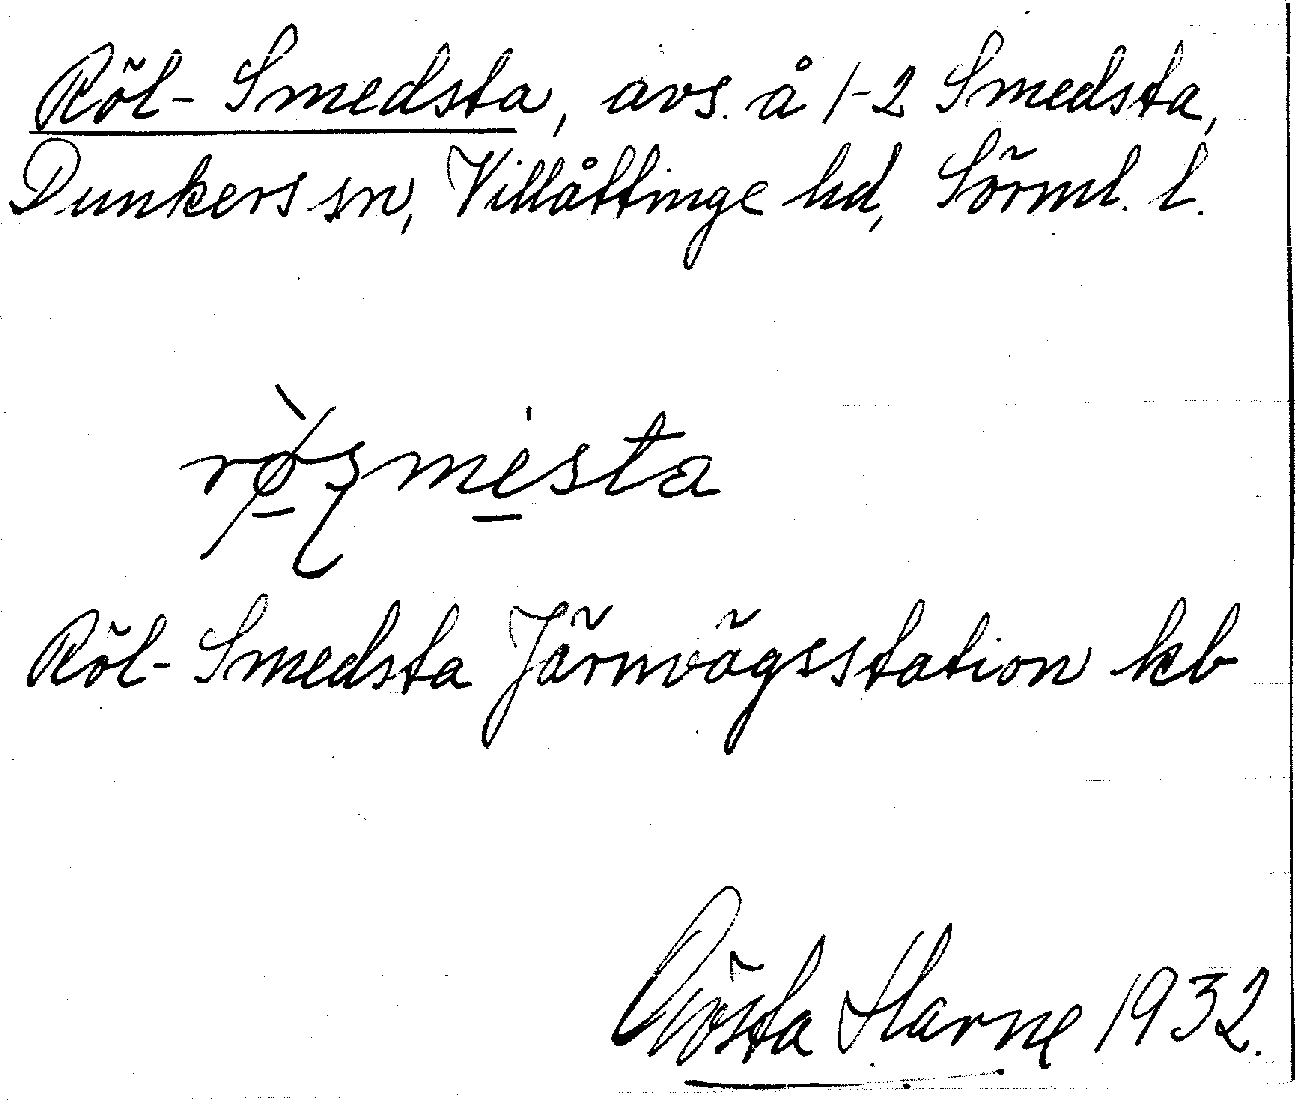 Röl-Smedsta, avs. å 1-2 Smedsta,
Dunkers sn, Villåttinge hd, Sörml. l.
Röl-Smedsta Järnvägsstation kb
Gösta Harne 1932.